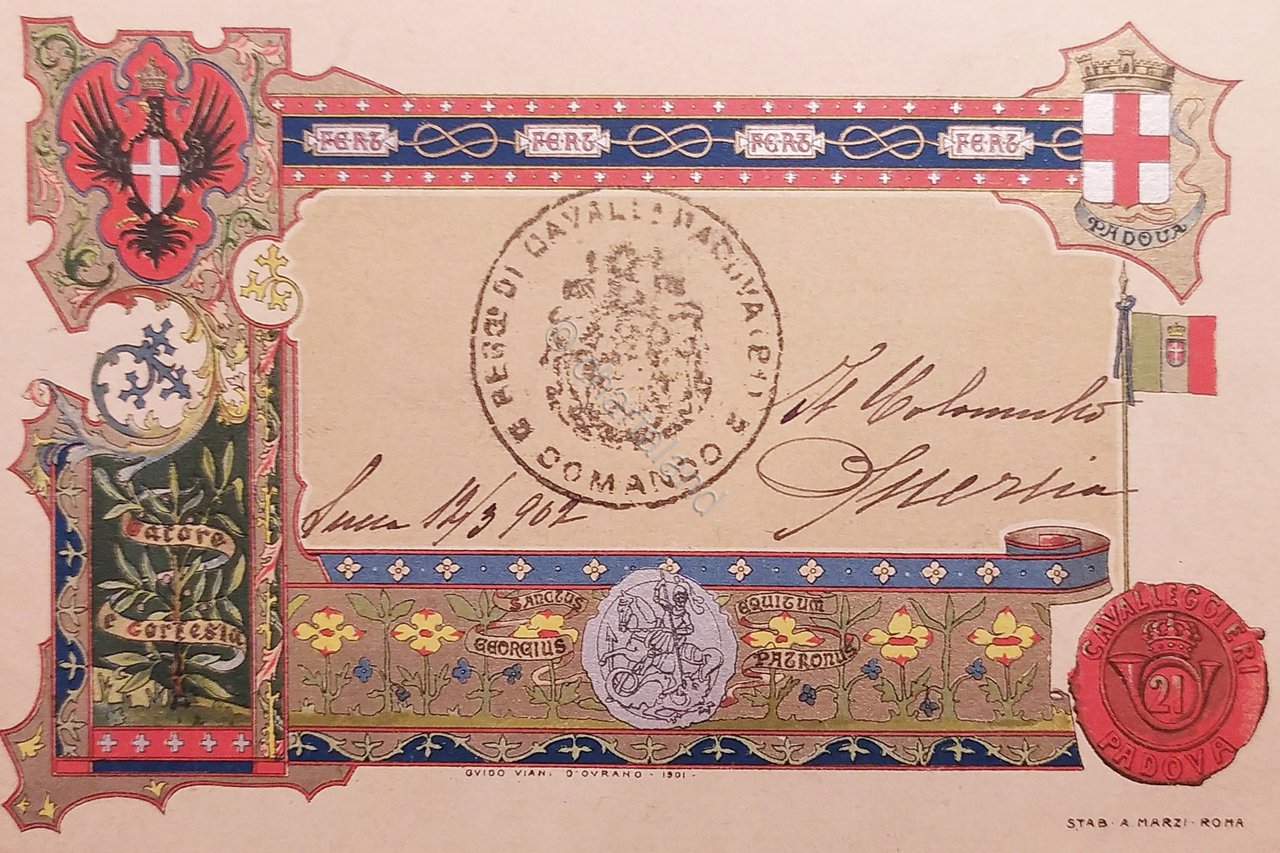 FERT FERT FERT FERT
PADOVA
REGG DI CAVALL PADOVA (21)
COMANDO
Il Colonnello
Lucca 12/3 902
Valore
e Cortesia
SANCTUS EQUITUM
GEORGIUS PATRONUS
CAVALLEGGIERI
21
PADOVA
GVIDO VIANI D'OVRANO - 1901 -
STAB · A. MARZI · ROMA